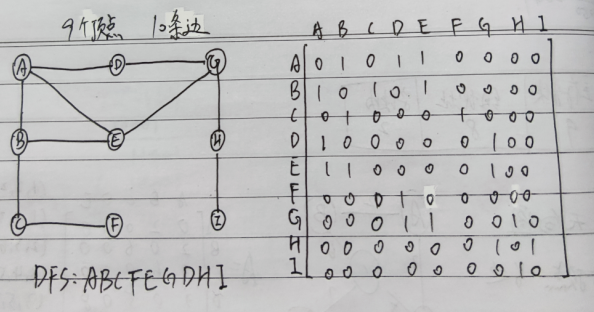 9个顶点 10条边
A D G
B E H
C F I
DFS: ABCFEGDHI
A B C D E F G H I
A 0 1 0 1 1 0 0 0 0
B 1 0 1 0 1 0 0 0 0
C 0 1 0 0 0 1 0 0 0
D 1 0 0 0 0 0 1 0 0
E 1 1 0 0 0 0 1 0 0
F 0 0 0 1 0 0 0 0 0
G 0 0 0 1 1 0 0 1 0
H 0 0 0 0 0 0 1 0 1
I 0 0 0 0 0 0 0 1 0